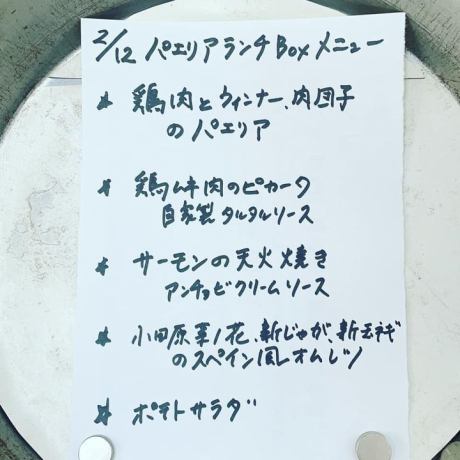 2/12 パエリアランチBoxメニュー
* 鶏肉とウィンナー、肉団子
のパエリア
* 鶏ムネ肉のピカータ
自家製タルタルソース
* サーモンの天火焼き
アンチョビクリームソース
* 小田原菜ノ花、新じゃが、新玉ネギ
のスペイン風オムレツ
* ポテトサラダ